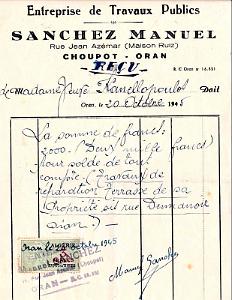 Entreprise de Travaux Publics
SANCHEZ MANUEL
Rue Jean Azémar (Maison Ruiz)
CHOUPOT - ORAN
R. C. Oran n° 16.551
REÇU
Madame Doit
Oran, le 20 Octobre 1945
La somme de francs:
2000. (Deux mille francs)
pour solde de tout
compte (Travaux de
réparation Terrasse de sa
propriété sit rue
Oran le 20 Octobre 1945
SANCHEZ
Rue Jean Azémar (Choupot)
ORAN - R.C.
Manuel Sanchez